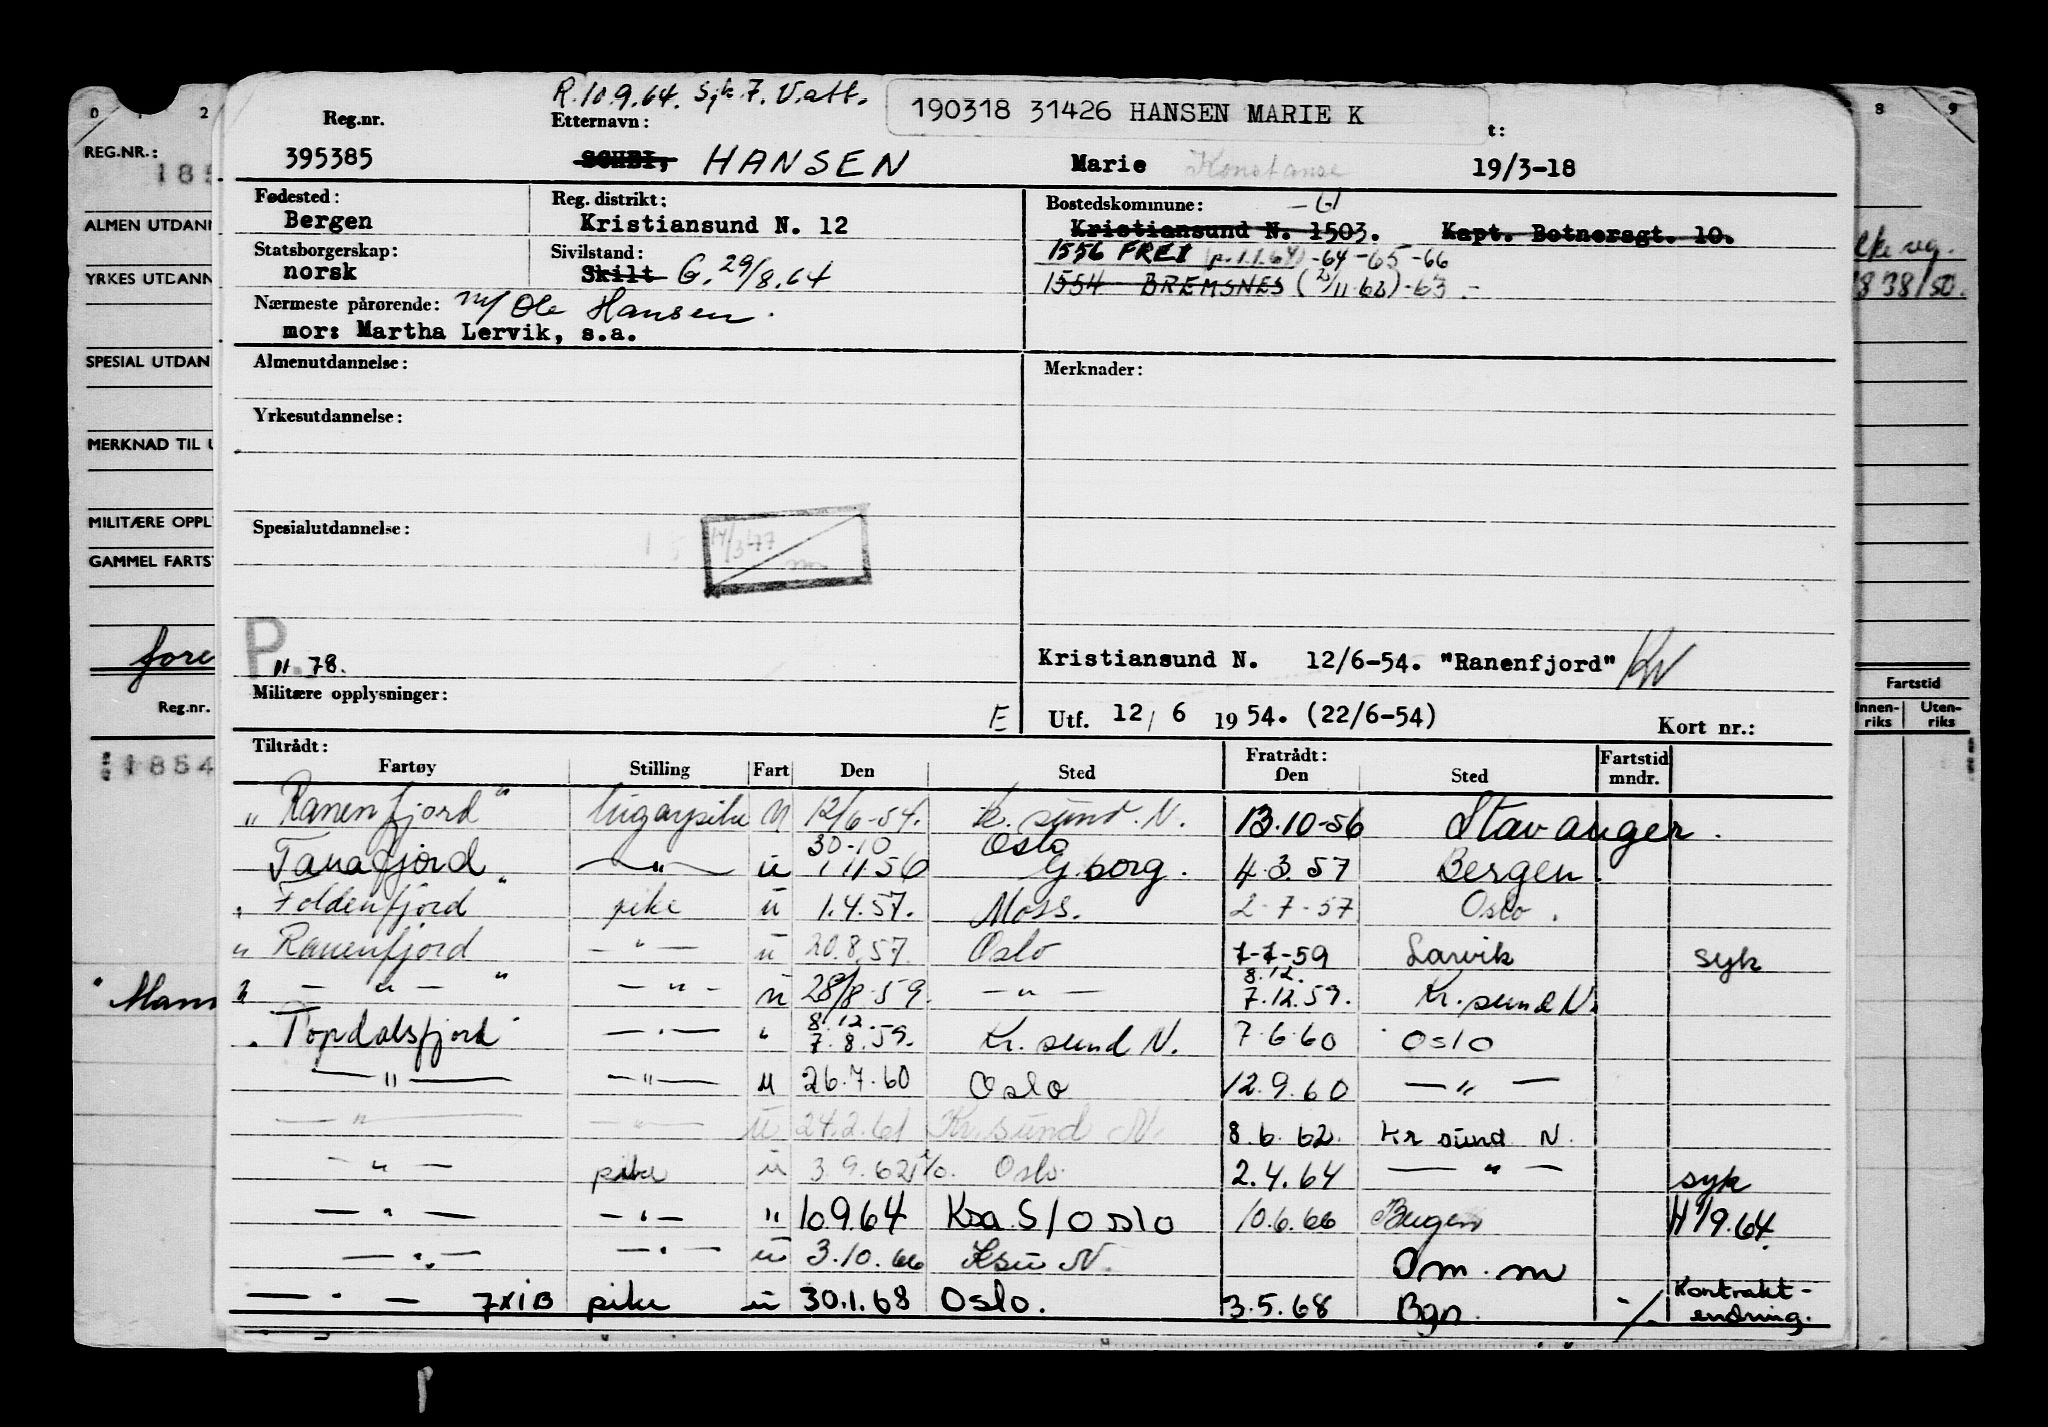 R. 10.9.64. Sjk. 7. V.att.
190318 31426 HANSEN MARIE K
Reg.nr. Etternavn: t:
395385 HANSEN Marie Konstanse 19/3-18
Fødested: Reg. distrikt: Bostedskommune:
Bergen Kristiansund N. 12 Kristiansund N. 1503. Kapt. Botnersgt. 10.
Statsborgerskap: Sivilstand: 1556 FREI (p.1.1.64) -64 -65 -66
norsk Skilt G. 29/8.64 1554 BREMSNES -63.-
Nærmeste pårørende: m/ Ole Hansen.
mor: Martha Lervik, s.a.
Almenutdannelse: Merknader:
Yrkesutdannelse:
Spesialutdannelse:
14/3-77
P. 11.78.
Kristiansund N. 12/6-54. "Ranenfjord" KN
Militære opplysninger: E Utf. 12/6 1954. (22/6-54) Kort nr.:
Tiltrådt: Fratrådt: Fartstid
Fartøy Stilling Fart Den Sted Den Sted mndr.
"Ranenfjord" lugarpike u 12/6-54. Kr. sund. N. 13.10-56 Stavanger.
30-10 Oslo
Tanafjord " u 1.11.56 G.borg. 4.3.57 Bergen.
"Foldenfjord" pike u 1.4.57. Moss. 2-7-57 Oslo.
"Ranenfjord - " - u 20.8.57. Oslo 7-7-59 Larvik syk
8.12.
" - " - " - " - u 28/8-59. - " - 7.12.59. Kr. sund N.
8.12.
"Topdalsfjord" - " - " 7.8.59. Kr. sund N. 7.6.60 Oslo
- " - - " - u 26.7.60 Oslo 12.9.60 - " -
- " - - " - u 24.2.61 Kr. sund N. 8.6.62. Kr sund N.
- " - pike u 3.9.62 Oslo. 2.4.64 - " - syk
- " - - " - " 10.9.64 Ksa S/Oslo 10.6.66 Bergen H 1/9.64.
- " - - " - u 3.10.66 Ksu N. Om. m
- " - 7XIB pike u 30.1.68 Oslo. 3.5.68 Bgn. -/. Kontrakt-
endring.
0 1 2
REG.NR.:
185
ALMEN UTDANN
YRKES UTDANN
SPESIAL UTDAN
MERKNAD TIL U
MILITÆRE OPPL
GAMMEL FARTST
fore
Reg.nr.
1854
"Mam
8 9
1838/50.
Fartstid
Innen-riks Uten-riks